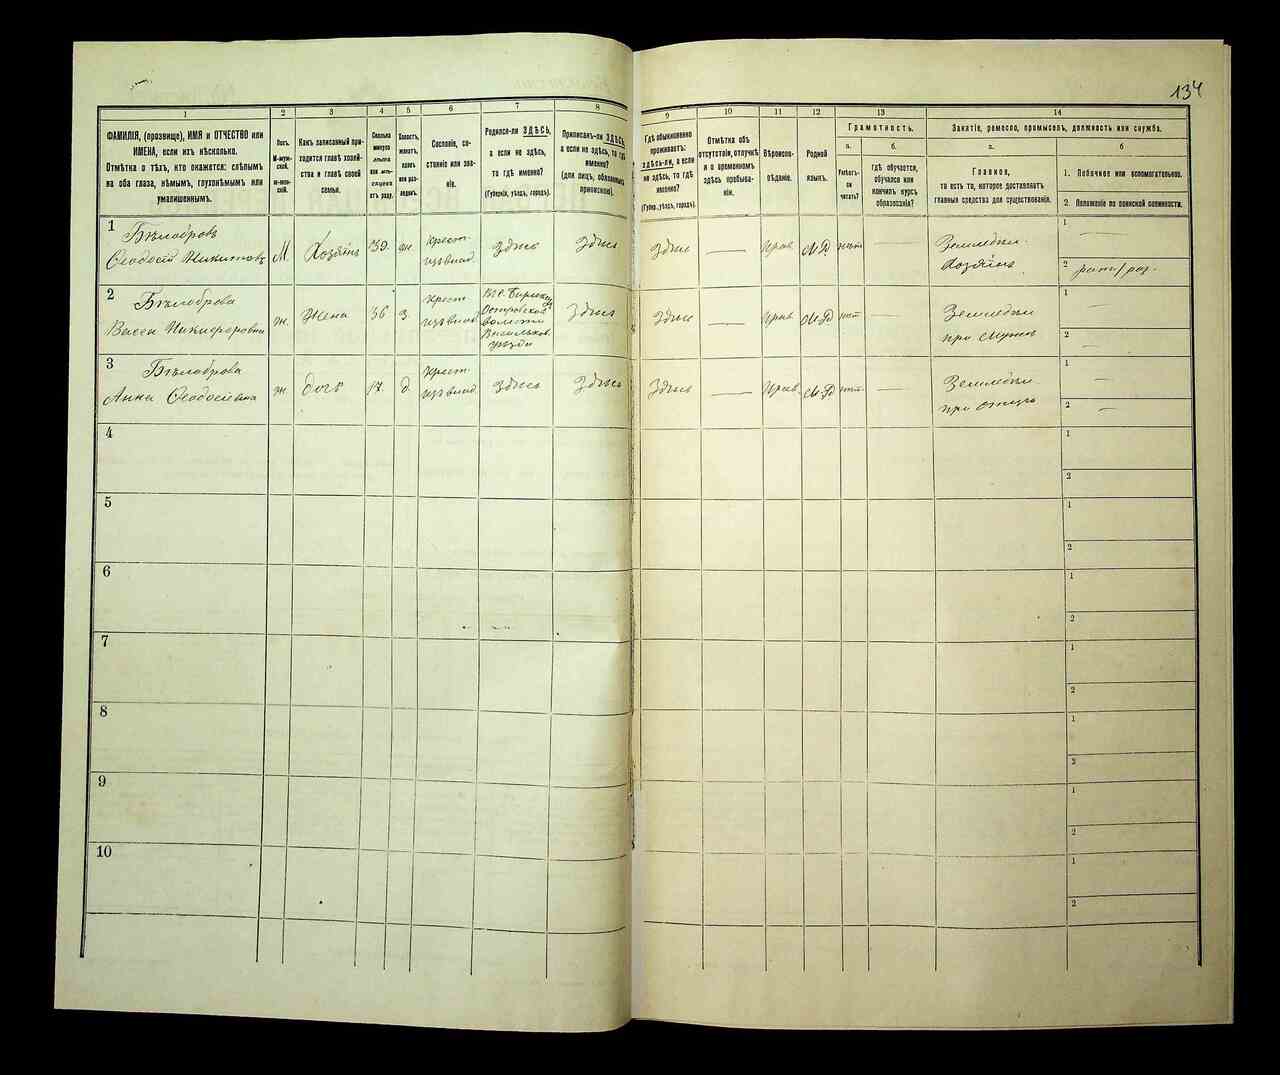 134
1
2
3
4
5
6
7
8
9
10
11
12
13
14
ФАМИЛІЯ, (прозвище), ИМЯ и ОТЧЕСТВО или
ИМЕНА, если ихъ нѣсколько.
Отмѣтка о тѣхъ, кто окажется: слѣпымъ
на оба глаза, нѣмымъ, глухонѣмымъ или
умалишеннымъ.
Полъ.
М-муж-
ской.
ж-жен-
ской.
Какъ записанный при-
ходится главѣ хозяй-
ства и главѣ своей
семьи.
Сколько
минуло
лѣтъ
или мѣ-
сяцевъ
отъ роду.
Холостъ,
женатъ,
вдовъ
или раз-
веденъ.
Сословіе, со-
стояніе или зва-
ніе.
Родился-ли ЗДѢСЬ,
а если не здѣсь,
то гдѣ именно?
(Губернія, уѣздъ, городъ).
Приписанъ-ли ЗДѢСЬ,
а если не здѣсь, то гдѣ
именно?
(для лицъ, обязанныхъ
припискою).
Гдѣ обыкновенно
проживаетъ:
ЗДѢСЬ-ли, а если
не здѣсь, то гдѣ
именно?
(Губер., уѣздъ, городъ).
Отмѣтка объ
отсутствіи, отлучкѣ
и о временномъ
здѣсь пребыва-
ніи.
Вѣроиспо-
вѣданіе.
Родной
языкъ.
Грамотность.
а.
Умѣетъ-
ли
читать?
б.
гдѣ обучается,
обучался или
кончилъ курсъ
образованія?
Занятіе, ремесло, промыселъ, должность или служба.
а.
Главное,
то есть то, которое доставляетъ
главныя средства для существованія.
б
1. Побочное или вспомогательное.
2. Положеніе по воинской повинности.
1
Бѣлобровъ
Ѳеодосій Никитовъ
М
Хозяинъ
39
жн.
крест.
изъ влад.
Здѣсь
Здѣсь
Здѣсь
—
Прав
М.Р
нѣтъ
—
Земледѣл.
Хозяинъ
1 —
2
2
Бѣлоброва
Васса Никифоровна
ж.
Жена
36
з.
крест.
изъ влад.
Островской
волости
Васильков.
уѣзда
Здѣсь
Здѣсь
—
Прав
М.Р
нѣт
—
Земледѣл
при мужѣ
1 —
2 —
3
Бѣлоброва
Анна Ѳеодосіевна
ж
дочь
17.
д
крест.
изъ влад.
Здѣсь
Здѣсь
Здѣсь
—
Прав.
М.Р
нѣт.
—
Земледѣл
при отцѣ
1 —
2 —
4
1
2
5
1
2
6
1
2
7
1
2
8
1
2
9
1
2
10
1
2